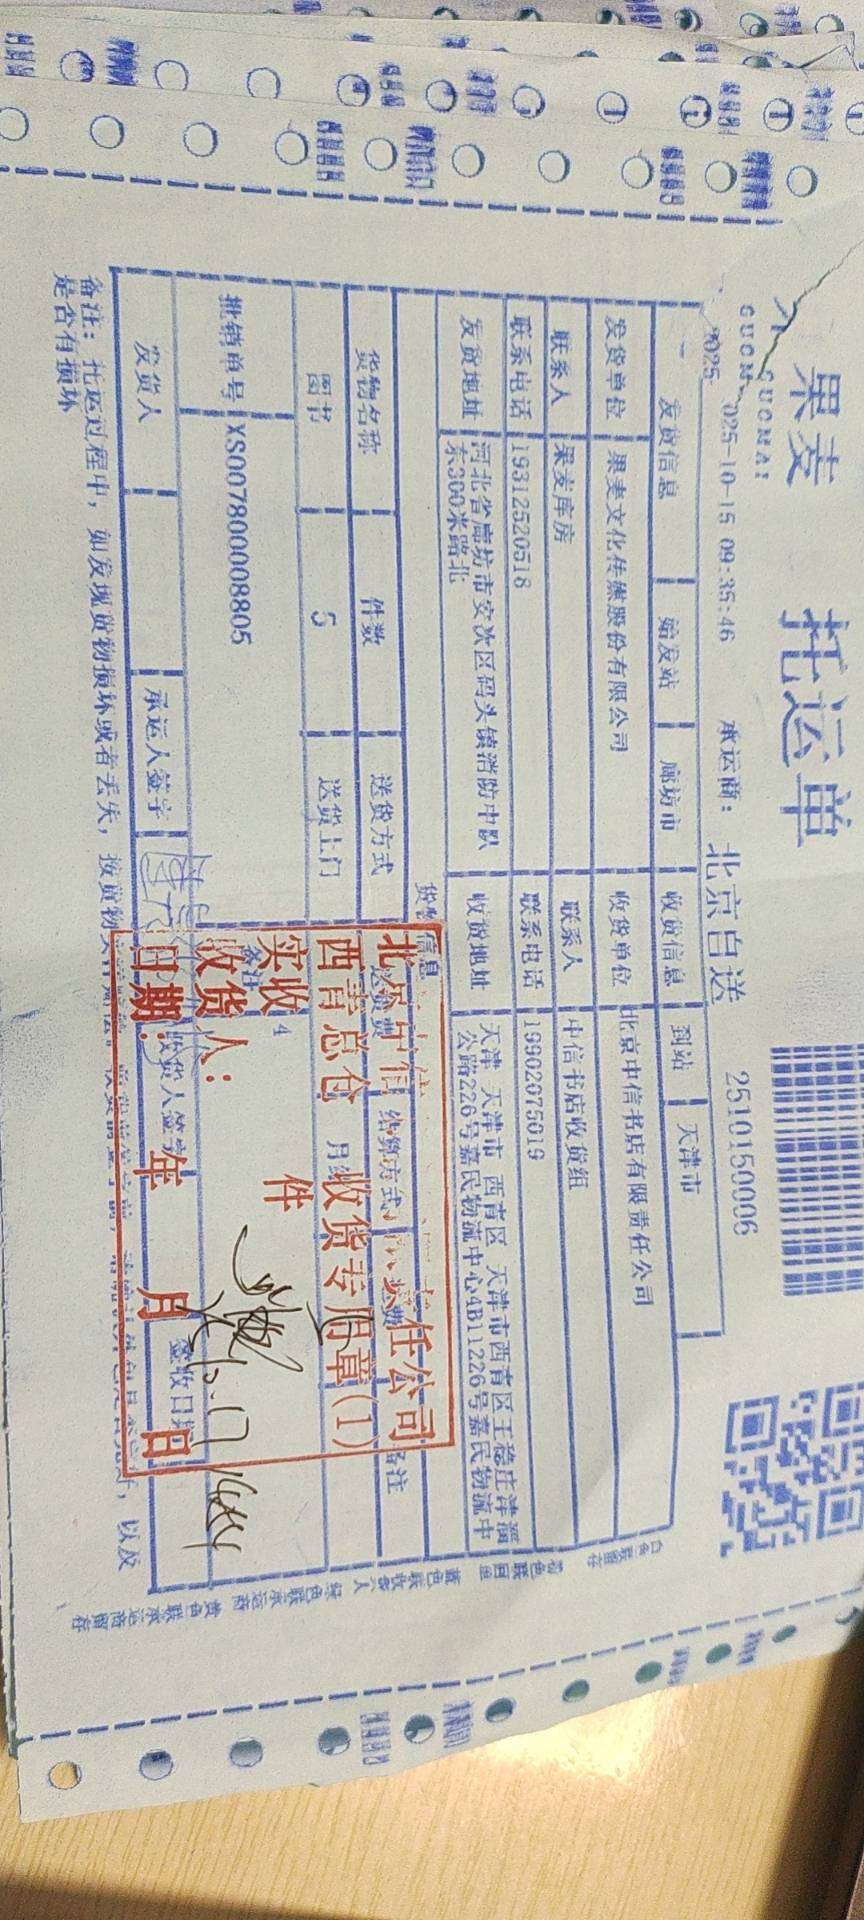 果麦 托运单
GUOMAI
025-10-15 09:35:46 承运商: 北京自送 2510150006
发货信息 始发站 廊坊市 收货信息 到站 天津市
发货单位 果麦文化传媒股份有限公司 收货单位 北京中信书店有限责任公司
联系人 果麦库房 联系人 中信书店收货组
联系电话 19312520518 联系电话 19902075019
发货地址 河北省廊坊市安次区码头镇消防中队东300米路北 收货地址 天津 天津市 西青区 天津市西青区王稳庄津淄公路226号嘉民物流中心4B11226号嘉民物流中
货物信息
货物名称 件数 送货方式 送货费 结算方式 备注
图书 5 送货上门 月结
批销单号 XS007800008805 备注 4
发货人 承运人签字 收货人签字 签收日期
备注: 托运过程中, 如发现货物损坏或者丢失, 按货物
以及
是否有损坏
白色联留存 粉色联回单 蓝色联收货人 绿色联承运商 黄色联承运商留存
北京中信 责任公司
西青总仓 收货专用章(1)
实收 件
收货人:
日期: 年 月 日